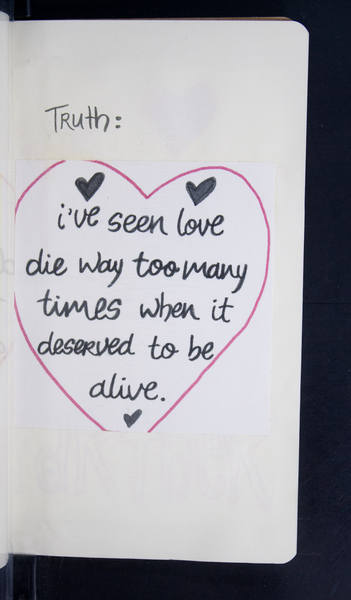 Truth:
i've seen love
die way too many
times when it
deserved to be
alive.